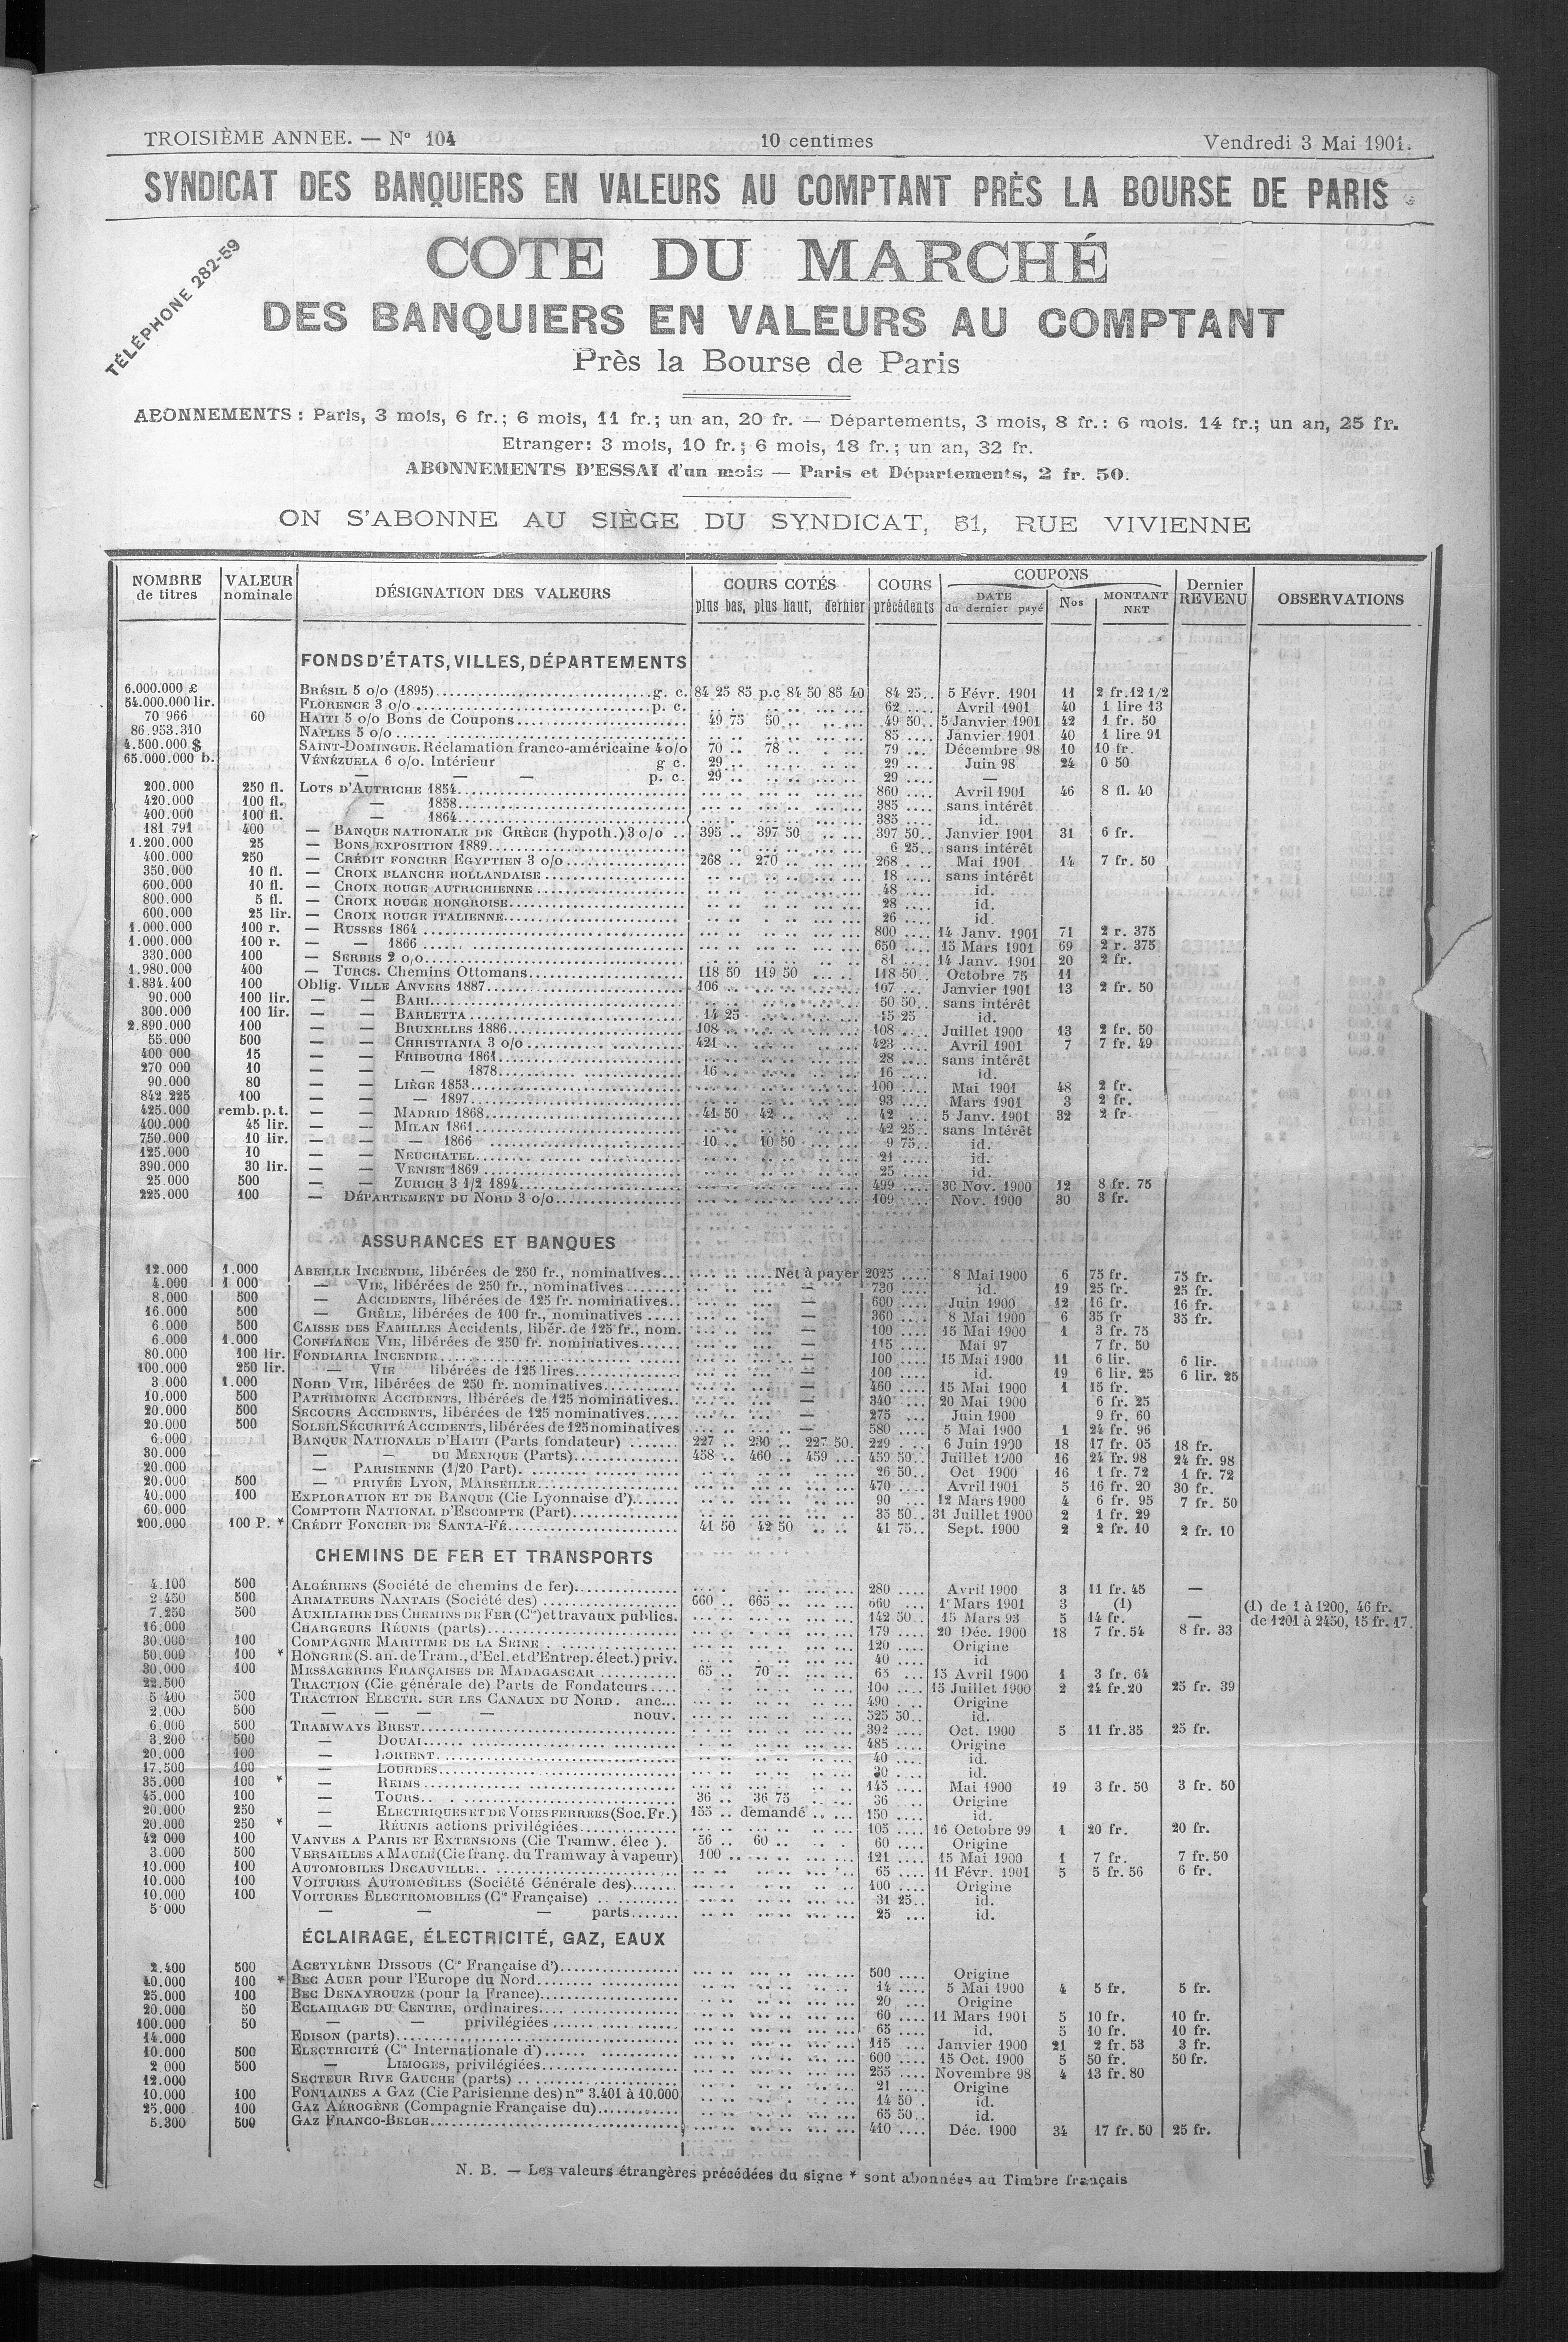 TROISIÈME ANNEE. — N° 104 10 centimes Vendredi 3 Mai 1901.
SYNDICAT DES BANQUIERS EN VALEURS AU COMPTANT PRÈS LA BOURSE DE PARIS
TÉLÉPHONE 282-59
COTE DU MARCHÉ
DES BANQUIERS EN VALEURS AU COMPTANT
Près la Bourse de Paris
ABONNEMENTS : Paris, 3 mois, 6 fr.; 6 mois, 11 fr.; un an, 20 fr. — Départements, 3 mois, 8 fr.: 6 mois. 14 fr.; un an, 25 fr.
Etranger: 3 mois, 10 fr.; 6 mois, 18 fr.; un an, 32 fr.
ABONNEMENTS D'ESSAI d'un mois — Paris et Départements, 2 fr. 50.
ON S'ABONNE AU SIÈGE DU SYNDICAT, 51, RUE VIVIENNE
NOMBRE de titres VALEUR nominale DÉSIGNATION DES VALEURS COURS COTÉS plus bas, plus haut, dernier COURS précédents COUPONS DATE du dernier payé Nos MONTANT NET Dernier REVENU OBSERVATIONS
FONDS D'ÉTATS, VILLES, DÉPARTEMENTS
6.000.000 £ BRÉSIL 5 o/o (1895) g. c. 84 25 85 p.c 84 50 85 40 84 25 5 Févr. 1901 11 2 fr. 12 1/2
54.000.000 lir. FLORENCE 3 o/o p. c. 62 Avril 1901 40 1 lire 13
70 966 60 HAITI 5 o/o Bons de Coupons 49 75 50 49 50 5 Janvier 1901 42 1 fr. 50
86.953.310 NAPLES 5 o/o 85 Janvier 1901 40 1 lire 91
4.500.000 $ SAINT-DOMINGUE. Réclamation franco-américaine 4 o/o 70 78 79 Décembre 98 10 10 fr.
65.000.000 b. VÉNÉZUELA 6 o/o. Intérieur g c. 29 29 Juin 98 24 0 50
— — — p. c. 29 29 —
200.000 250 fl. LOTS D'AUTRICHE 1854 860 Avril 1901 46 8 fl. 40
420.000 100 fl. — 1858 385 sans intérêt
400.000 100 fl. — 1864 385 id.
181.791 400 — BANQUE NATIONALE DE GRÈCE (hypoth.) 3 o/o 395 397 50 397 50 Janvier 1901 31 6 fr.
1.200.000 25 — BONS EXPOSITION 1889 6 25 sans intérêt
400.000 250 — CRÉDIT FONCIER EGYPTIEN 3 o/o 268 270 268 Mai 1901 14 7 fr. 50
350.000 10 fl. — CROIX BLANCHE HOLLANDAISE 18 sans intérêt
600.000 10 fl. — CROIX ROUGE AUTRICHIENNE 48 id.
800.000 5 fl. — CROIX ROUGE HONGROISE 28 id.
600.000 25 lir. — CROIX ROUGE ITALIENNE 26 id.
1.000.000 100 r. — RUSSES 1864 800 14 Janv. 1901 71 2 r. 375
1.000.000 100 r. — — 1866 650 15 Mars 1901 69 2 r. 375
330.000 100 — SERBES 2 o/o 81 14 Janv. 1901 20 2 fr.
1.980.000 400 — TURCS. Chemins Ottomans 118 50 119 50 118 50 Octobre 75 11
1.834.400 100 Oblig. VILLE ANVERS 1887 106 107 Janvier 1901 13 2 fr. 50
90.000 100 lir. — — BARI 50 50 sans intérêt
300.000 100 lir. — — BARLETTA 14 25 15 25 id.
2.890.000 100 — — BRUXELLES 1886 108 108 Juillet 1900 13 2 fr. 50
55.000 500 — — CHRISTIANIA 3 o/o 421 423 Avril 1901 7 7 fr. 49
400 000 15 — — FRIBOURG 1861 28 sans intérêt
270 000 10 — — — 1878 16 16 id.
90.000 80 — — LIÈGE 1853 100 Mai 1901 48 2 fr.
842 225 100 — — — 1897 93 Mars 1901 3 2 fr.
425.000 remb. p. t. — — MADRID 1868 41 50 42 42 5 Janv. 1901 32 2 fr.
400.000 45 lir. — — MILAN 1861 42 25 sans intérêt
750.000 10 lir. — — — 1866 10 10 50 9 75 id.
125.000 10 — — NEUCHATEL 21 id.
390.000 30 lir. — — VENISE 1869 25 id.
25.000 500 — — ZURICH 3 1/2 1894 499 30 Nov. 1900 12 8 fr. 75
225.000 100 — DÉPARTEMENT DU NORD 3 o/o 109 Nov. 1900 30 3 fr.
ASSURANCES ET BANQUES
12.000 1.000 ABEILLE INCENDIE, libérées de 250 fr., nominatives Net à payer 2025 8 Mai 1900 6 75 fr. 75 fr.
4.000 1 000 — VIE, libérées de 250 fr., nominatives — 730 id. 19 25 fr. 25 fr.
8.000 500 — ACCIDENTS, libérées de 125 fr. nominatives — 600 Juin 1900 12 16 fr. 16 fr.
16.000 500 — GRÊLE, libérées de 100 fr., nominatives — 360 8 Mai 1900 6 35 fr 35 fr.
6 000 500 CAISSE DES FAMILLES Accidents, libér. de 125 fr., nom. — 100 15 Mai 1900 1 3 fr. 75
6.000 1.000 CONFIANCE VIE, libérées de 250 fr. nominatives — 115 Mai 97 7 fr. 50
80.000 100 lir. FONDIARIA INCENDIE — 100 15 Mai 1900 11 6 lir. 6 lir.
100.000 250 lir. — VIE libérées de 125 lires — 100 id. 19 6 lir. 25 6 lir. 25
3 000 1.000 NORD VIE, libérées de 250 fr. nominatives — 460 15 Mai 1900 1 15 fr.
10.000 500 PATRIMOINE ACCIDENTS, libérées de 125 nominatives — 340 20 Mai 1900 6 fr. 25
20.000 500 SECOURS ACCIDENTS, libérées de 125 nominatives — 275 Juin 1900 9 fr. 60
20.000 500 SOLEIL SÉCURITÉ ACCIDENTS, libérées de 125 nominatives — 580 5 Mai 1900 1 24 fr. 96
6.000 BANQUE NATIONALE D'HAITI (Parts fondateur) 227 230 227 50 229 6 Juin 1900 18 17 fr. 05 18 fr.
30.000 — DU MEXIQUE (Parts) 458 460 459 459 50 Juillet 1900 16 24 fr. 98 24 fr. 98
20.000 — PARISIENNE (1/20 Part) 26 50 Oct 1900 16 1 fr. 72 1 fr. 72
20.000 500 — PRIVÉE LYON, MARSEILLE 470 Avril 1901 5 16 fr. 20 30 fr.
40.000 100 EXPLORATION ET DE BANQUE (Cie Lyonnaise d') 90 12 Mars 1900 4 6 fr. 95 7 fr. 50
60.000 COMPTOIR NATIONAL D'ESCOMPTE (Part) 35 50 31 Juillet 1900 2 1 fr. 29
200.000 100 P. * CRÉDIT FONCIER DE SANTA-FÉ 41 50 42 50 41 75 Sept. 1900 2 2 fr. 10 2 fr. 10
CHEMINS DE FER ET TRANSPORTS
4.100 500 ALGÉRIENS (Société de chemins de fer) 280 Avril 1900 3 11 fr. 45 —
2 450 500 ARMATEURS NANTAIS (Société des) 660 665 660 1r Mars 1901 3 (1) (1) de 1 à 1200, 46 fr.
7.250 500 AUXILIAIRE DES CHEMINS DE FER (Cie) et travaux publics. 142 50 15 Mars 93 5 14 fr. — de 1201 à 2450, 15 fr. 17.
16.000 CHARGEURS RÉUNIS (parts) 179 20 Déc. 1900 18 7 fr. 54 8 fr. 33
30.000 100 COMPAGNIE MARITIME DE LA SEINE 120 Origine
50.000 100 * HONGRIE (S. an. de Tram., d'Ecl. et d'Entrep. élect.) priv. 40 id
30.000 100 MESSAGERIES FRANÇAISES DE MADAGASCAR 65 70 65 15 Avril 1900 1 3 fr. 64
22.500 TRACTION (Cie générale de) Parts de Fondateurs 100 15 Juillet 1900 2 24 fr. 20 25 fr. 39
5 400 500 TRACTION ELECTR. SUR LES CANAUX DU NORD. anc. 490 Origine
2.000 500 — — — — nouv. 525 50 id.
6.000 500 TRAMWAYS BREST 392 Oct. 1900 5 11 fr. 35 25 fr.
3.200 500 — DOUAI 485 Origine
20.000 100 — LORIENT 40 id.
17.500 100 — LOURDES 30 id.
35.000 100 * — REIMS 145 Mai 1900 19 3 fr. 50 3 fr. 50
45.000 100 — TOURS 36 36 75 36 Origine
20.000 250 — ELECTRIQUES ET DE VOIES FERREES (Soc. Fr.) 155 demandé 150 id.
20.000 250 * — RÉUNIS actions privilégiées 105 16 Octobre 99 1 20 fr. 20 fr.
42 000 100 VANVES A PARIS ET EXTENSIONS (Cie Tramw. élec ). 56 60 60 Origine
3.000 500 VERSAILLES A MAULE (Cie franç. du Tramway à vapeur) 100 121 15 Mai 1900 1 7 fr. 7 fr. 50
10.000 100 AUTOMOBILES DECAUVILLE 65 11 Févr. 1901 5 5 fr. 56 6 fr.
10.000 100 VOITURES AUTOMOBILES (Société Générale des) 100 Origine
10.000 100 VOITURES ELECTROMOBILES (Cie Française) 31 25 id.
5 000 — — — parts 25 id.
ÉCLAIRAGE, ÉLECTRICITÉ, GAZ, EAUX
2.400 500 ACETYLÈNE DISSOUS (Cie Française d') 500 Origine
40.000 100 * BEC AUER pour l'Europe du Nord 14 5 Mai 1900 4 5 fr. 5 fr.
25.000 100 BEC DENAYROUZE (pour la France) 20 Origine
20.000 50 ECLAIRAGE DU CENTRE, ordinaires 60 11 Mars 1901 5 10 fr. 10 fr.
100.000 50 — — privilégiées 65 id. 5 10 fr. 10 fr.
14.000 EDISON (parts) 115 Janvier 1900 21 2 fr. 53 3 fr.
10.000 500 ELECTRICITÉ (Cie Internationale d') 600 15 Oct. 1900 5 50 fr. 50 fr.
2 000 500 — LIMOGES, privilégiées 255 Novembre 98 4 13 fr. 80
12.000 SECTEUR RIVE GAUCHE (parts) 21 Origine
10.000 100 FONTAINES A GAZ (Cie Parisienne des) nos 3.401 à 10.000 14 50 id.
25.000 100 GAZ AÉROGÈNE (Compagnie Française du) 65 50 id.
5.300 500 GAZ FRANCO-BELGE 410 Déc. 1900 34 17 fr. 50 25 fr.
N. B. — Les valeurs étrangères précédées du signe * sont abonnées au Timbre français